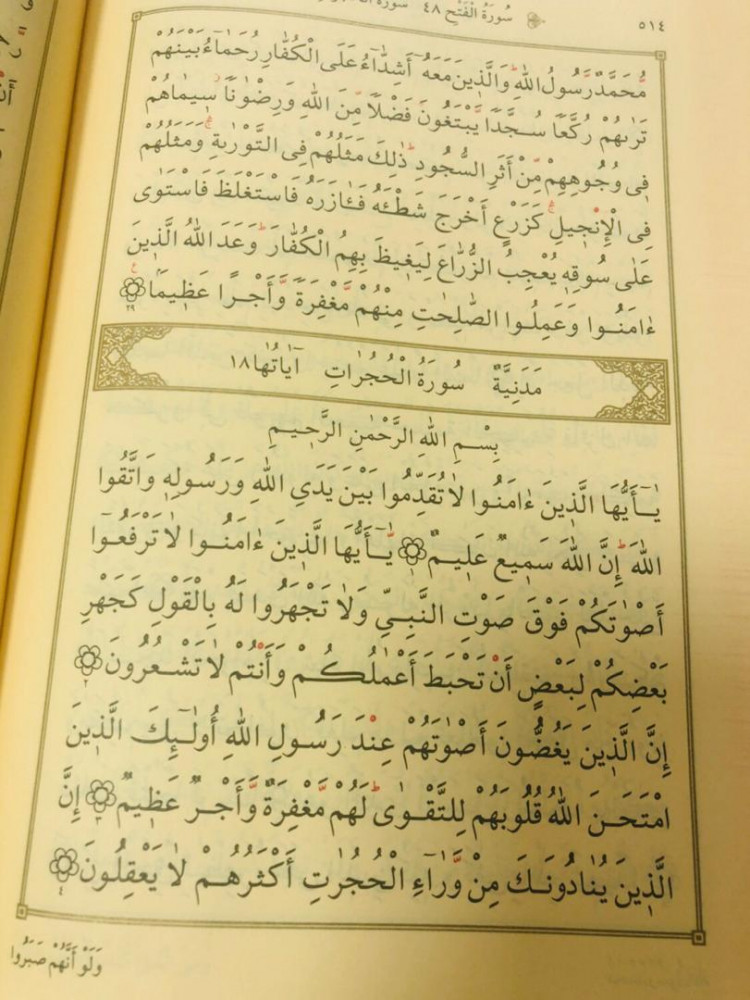 سُورَةُ الْفَتْحِ ٤٨
٥١٤
مُّحَمَّدٌ رَّسُولُ اللّٰهِ وَالَّذِينَ مَعَهُٓ أَشِدَّآءُ عَلَى الْكُفَّارِ رُحَمَآءُ بَيْنَهُمْ
تَرٰىهُمْ رُكَّعًا سُجَّدًا يَّبْتَغُونَ فَضْلًا مِّنَ اللّٰهِ وَرِضْوٰنًا سِيمَاهُمْ
فِى وُجُوهِهِمْ مِّنْ أَثَرِ السُّجُودِ ذٰلِكَ مَثَلُهُمْ فِى التَّوْرٰىةِ وَمَثَلُهُمْ
فِى الْإِنْجِيلِ كَزَرْعٍ أَخْرَجَ شَطْـَٔهُ فَـَٔازَرَهُ فَاسْتَغْلَظَ فَاسْتَوٰى
عَلٰى سُوقِهِ يُعْجِبُ الزُّرَّاعَ لِيَغِيظَ بِهِمُ الْكُفَّارَ وَعَدَ اللّٰهُ الَّذِينَ
ءَامَنُوا وَعَمِلُوا الصّٰلِحٰتِ مِنْهُمْ مَّغْفِرَةً وَّأَجْرًا عَظِيمًا ٢٩
مَدَنِيَّةٌ سُورَةُ الْحُجُرٰاتِ اٰيَاتُهَا ١٨
بِسْمِ اللّٰهِ الرَّحْمٰنِ الرَّحِيمِ
يٰٓـأَيُّهَا الَّذِينَ ءَامَنُوا لَا تُقَدِّمُوا بَيْنَ يَدَىِ اللّٰهِ وَرَسُولِهِ وَاتَّقُوا
اللّٰهَ إِنَّ اللّٰهَ سَمِيعٌ عَلِيمٌ ١ يٰٓـأَيُّهَا الَّذِينَ ءَامَنُوا لَا تَرْفَعُوٓا
أَصْوٰتَكُمْ فَوْقَ صَوْتِ النَّبِىِّ وَلَا تَجْهَرُوا لَهُ بِالْقَوْلِ كَجَهْرِ
بَعْضِكُمْ لِبَعْضٍ أَنْ تَحْبَطَ أَعْمٰلُكُمْ وَأَنْتُمْ لَا تَشْعُرُونَ ٢
إِنَّ الَّذِينَ يَغُضُّونَ أَصْوٰتَهُمْ عِنْدَ رَسُولِ اللّٰهِ أُولٰٓئِكَ الَّذِينَ
امْتَحَنَ اللّٰهُ قُلُوبَهُمْ لِلتَّقْوٰى لَهُمْ مَّغْفِرَةٌ وَّأَجْرٌ عَظِيمٌ ٣ إِنَّ
الَّذِينَ يُنَادُونَكَ مِنْ وَّرَآءِ الْحُجُرٰتِ أَكْثَرُهُمْ لَا يَعْقِلُونَ ٤
وَلَوْ أَنَّهُمْ صَبَرُوا